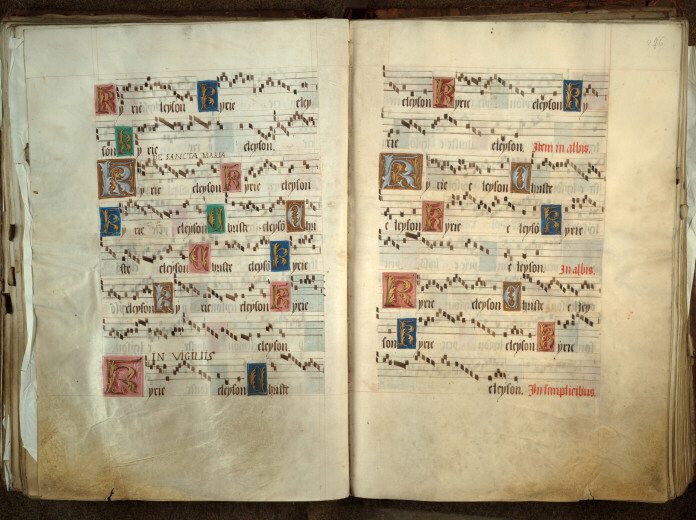 Kyrie eleyson Kyrie eley
son Kyrie eleyson
DE SANCTA MARIA
Kyrie eleyson Kyrie eleyson
Kyrie eleyson Christe eleyso Chri
ste eleyson Christe eleyso Kyrie
eleyson Kyrie eleyson Kyrie
eleyson
IN VIGILIIS
Kyrie eleyson Christe
eleyson Kyrie eleyson Ky
rie eleyson. Item in albis.
Kyrie eleyson Christe
eleyson Kyrie eleyso Kyrie
eleyson. In albis.
Kyrie eleyson Christe eley
son Kyrie eleyson Kyrie
eleyson. In simplicibus.